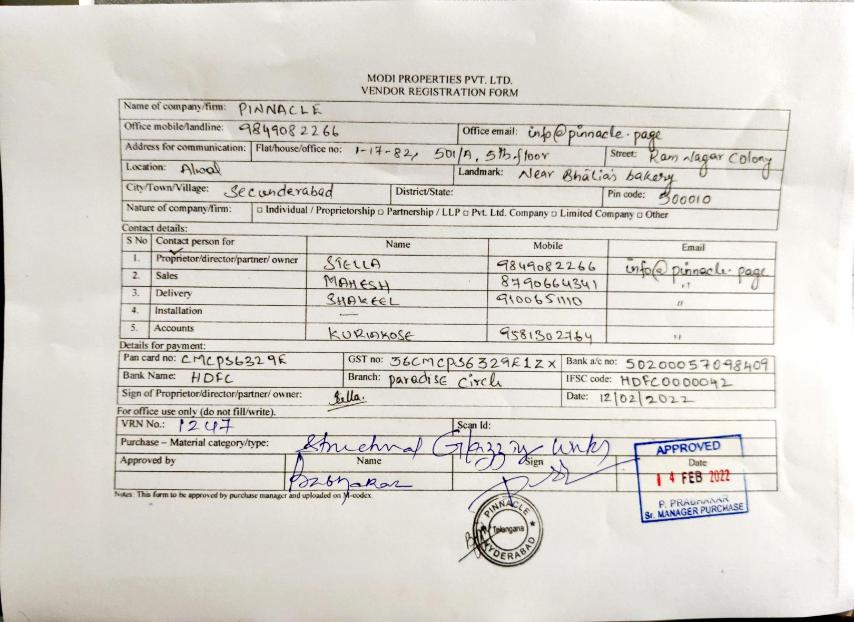 MODI PROPERTIES PVT. LTD.
VENDOR REGISTRATION FORM
Name of company/firm: PINNACLE
Office mobile/landline: 9849082266 Office email: info@pinnacle.page
Address for communication: Flat/house/office no: 1-17-82, 501/A, 5th floor Street: Ram Nagar Colony
Location: Alwal Landmark: Near Bhatia's bakery
City/Town/Village: Secunderabad District/State: Pin code: 500010
Nature of company/firm: □ Individual / Proprietorship □ Partnership / LLP □ Pvt. Ltd. Company □ Limited Company □ Other
Contact details:
S No Contact person for Name Mobile Email
1. Proprietor/director/partner/ owner STELLA 9849082266 info@pinnacle.page
2. Sales MAHESH 8790664341 "
3. Delivery SHAKEEL 9100651110 "
4. Installation —
5. Accounts KURIAKOSE 9581302764 "
Details for payment:
Pan card no: CMCPS6329E GST no: 36CMCPS6329E1ZX Bank a/c no: 50200057098409
Bank Name: HDFC Branch: paradise Circle IFSC code: HDFC0000042
Sign of Proprietor/director/partner/ owner: Stella. Date: 12/02/2022
For office use only (do not fill/write).
VRN No.: 1247 Scan Id:
Purchase – Material category/type: Structural Glazzing Works
Approved by Name Sign Date
Prabhakar
APPROVED
14 FEB 2022
P. PRABHAKAR
Sr. MANAGER PURCHASE
Notes: This form to be approved by purchase manager and uploaded on M-codex.
PINNACLE
Telangana
HYDERABAD